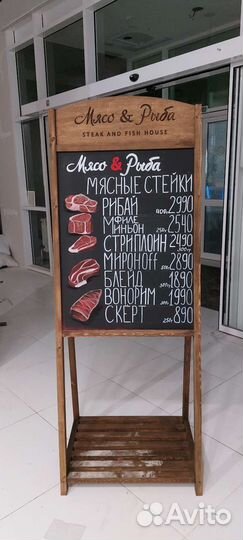 Мясо & Рыба
STEAK AND FISH HOUSE
Мясо & Рыба
МЯСНЫЕ СТЕЙКИ
РИБАЙ 400г 2990
ФИЛЕ МИНЬОН 250г 2540
СТРИПЛОЙН 300гр 2490
МИРОНОFF 2890
БЛЕЙД 1890
ВОНОРИМ 1990
СКЕРТ 250г 890
Avito